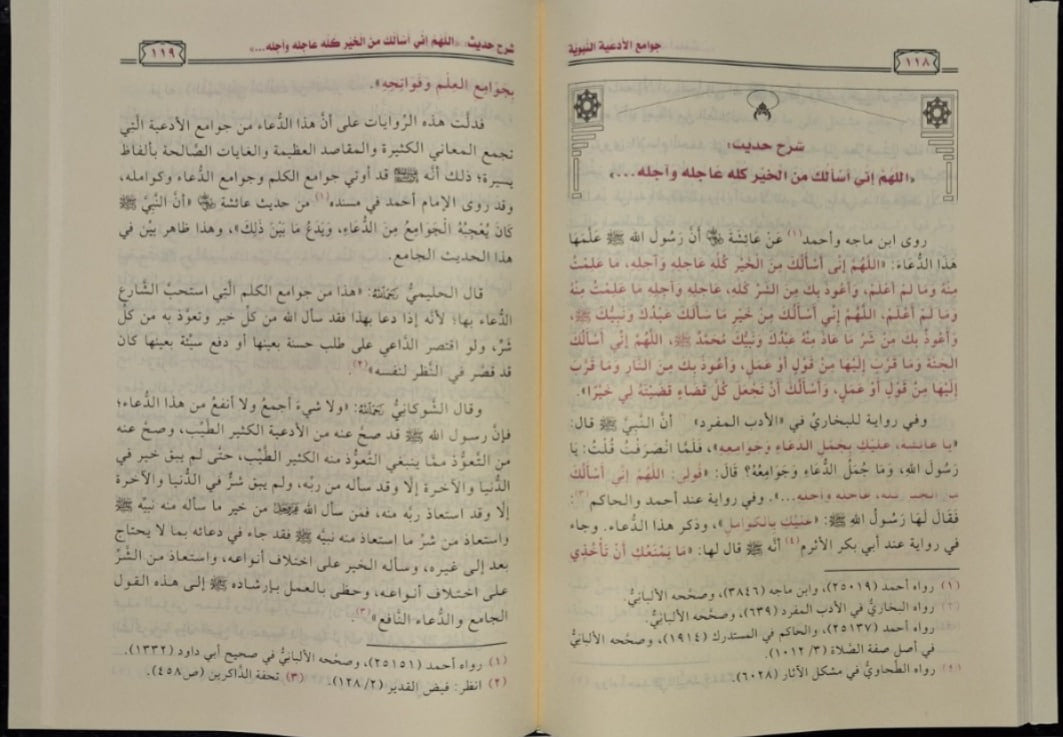 جوامع الأدعية النبوية
١١٨
شرح حديث:
«اللهم إني أسألك من الخير كله عاجله وآجله...»
روى ابن ماجه وأحمد(١) عَنْ عَائِشَةَ أَنَّ رَسُولَ الله ﷺ عَلَّمَهَا
هَذَا الدُّعَاءَ: «اللَّهُمَّ إِنِّي أَسْأَلُكَ مِنَ الْخَيْرِ كُلِّهِ عَاجِلِهِ وَآجِلِهِ، مَا عَلِمْتُ
مِنْهُ وَمَا لَمْ أَعْلَمْ، وَأَعُوذُ بِكَ مِنَ الشَّرِّ كُلِّهِ، عَاجِلِهِ وَآجِلِهِ مَا عَلِمْتُ مِنْهُ
وَمَا لَمْ أَعْلَمْ، اللَّهُمَّ إِنِّي أَسْأَلُكَ مِنْ خَيْرِ مَا سَأَلَكَ عَبْدُكَ وَنَبِيُّكَ ﷺ،
وَأَعُوذُ بِكَ مِنْ شَرِّ مَا عَاذَ مِنْهُ عَبْدُكَ وَنَبِيُّكَ مُحَمَّدٌ ﷺ، اللَّهُمَّ إِنِّي أَسْأَلُكَ
الجَنَّةَ وَمَا قَرَّبَ إِلَيْهَا مِنْ قَوْلٍ أَوْ عَمَلٍ، وَأَعُوذُ بِكَ مِنَ النَّارِ وَمَا قَرَّبَ
إِلَيْهَا مِنْ قَوْلٍ أَوْ عَمَلٍ، وَأَسْأَلُكَ أَنْ تَجْعَلَ كُلَّ قَضَاءٍ قَضَيْتَهُ لِي خَيْرًا».
وفي رواية للبخاريِّ في «الأدب المفرد» أنَّ النَّبِيَّ ﷺ قال:
«يا عائشة، عليك بجمل الدعاء وجوامعه»، فَلَمَّا انْصَرَفْتُ قُلْتُ: يَا
رَسُولَ اللهِ، وَمَا جُمَلُ الدُّعَاءِ وَجَوَامِعُهُ؟ قَالَ: «قُولِي: اللَّهُمَّ إِنِّي أَسْأَلُكَ
من الخير كله، عاجله وآجله...». وفي رواية عند أحمد والحاكم(٣):
فَقَالَ لَهَا رَسُولُ اللهِ ﷺ: «عَلَيْكِ بِالْكَوَامِلِ»، وذكر هذا الدُّعاء. وجاء
في رواية عند أبي بكر الأثرم(٤) أنَّه ﷺ قال لها: «مَا يَمْنَعُكِ أَنْ تَأْخُذِي
(١) رواه أحمد (٢٥٠١٩)، وابن ماجه (٣٨٤٦)، وصحَّحه الألبانيُّ.
(٢) رواه البخاريُّ في الأدب المفرد (٦٣٩)، وصحَّحه الألبانيُّ.
(٣) رواه أحمد (٢٥١٣٧)، والحاكم في المستدرك (١٩١٤)، وصحَّحه الألبانيُّ
في أصل صفة الصَّلاة (٣/ ١٠١٢).
(٤) رواه الطَّحاويُّ في مشكل الآثار (٦٠٢٨).
شرح حديث: «اللهم إني أسألك من الخير كله عاجله وآجله...»
١١٩
بِجَوَامِعِ العِلْمِ وَفَوَاتِحِهِ».
فدلَّت هذه الرِّوايات على أنَّ هذا الدُّعاء من جوامع الأدعية الَّتي
تجمع المعاني الكثيرة والمقاصد العظيمة والغايات الصَّالحة بألفاظ
يسيرة؛ ذلك أنَّه ﷺ قد أوتي جوامع الكلم وجوامع الدُّعاء وكوامله،
وقد روى الإمام أحمد في مسنده(١) من حديث عائشة «أنَّ النَّبِيَّ ﷺ
كَانَ يُعْجِبُهُ الْجَوَامِعُ مِنَ الدُّعَاءِ، وَيَدَعُ مَا بَيْنَ ذَلِكَ»، وهذا ظاهر بيِّن في
هذا الحديث الجامع.
قال الحليميُّ رَحِمَهُ اللهُ: «هذا من جوامع الكلم الَّتي استحبَّ الشَّارع
الدُّعاء بها؛ لأنَّه إذا دعا بهذا فقد سأل الله من كلِّ خير وتعوَّذ به من كلِّ
شرٍّ، ولو اقتصر الدَّاعي على طلب حسنة بعينها أو دفع سيِّئة بعينها كان
قد قصَّر في النَّظر لنفسه»(٢).
وقال الشَّوكانيُّ رَحِمَهُ اللهُ: «ولا شيءَ أجمعُ ولا أنفعُ من هذا الدُّعاء؛
فإنَّ رسول الله ﷺ قد صحَّ عنه من الأدعية الكثير الطَّيِّب، وصحَّ عنه
من التَّعوُّذ ممَّا ينبغي التَّعوُّذ منه الكثير الطَّيِّب، حتَّى لم يبق خير في
الدُّنيا والآخرة إلَّا وقد سأله من ربِّه، ولم يبق شرٌّ في الدُّنيا والآخرة
إلَّا وقد استعاذ ربَّه منه، فمن سأل الله عَزَّ وَجَلَّ من خير ما سأله منه نبيُّه ﷺ
واستعاذ من شرِّ ما استعاذ منه نبيُّه ﷺ فقد جاء في دعائه بما لا يحتاج
بعد إلى غيره، وسأله الخير على اختلاف أنواعه، واستعاذ من الشَّرِّ
على اختلاف أنواعه، وحظي بالعمل بإرشاده ﷺ إلى هذا القول
الجامع والدُّعاء النَّافع»(٣).
(١) رواه أحمد (٢٥١٥١)، وصحَّحه الألبانيُّ في صحيح أبي داود (١٣٣٢).
(٢) انظر: فيض القدير (٢/ ١٢٨). (٣) تحفة الذَّاكرين (ص٤٥٨).